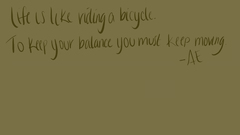 Life is like riding a bicycle.
To keep your balance you must keep moving
-AE